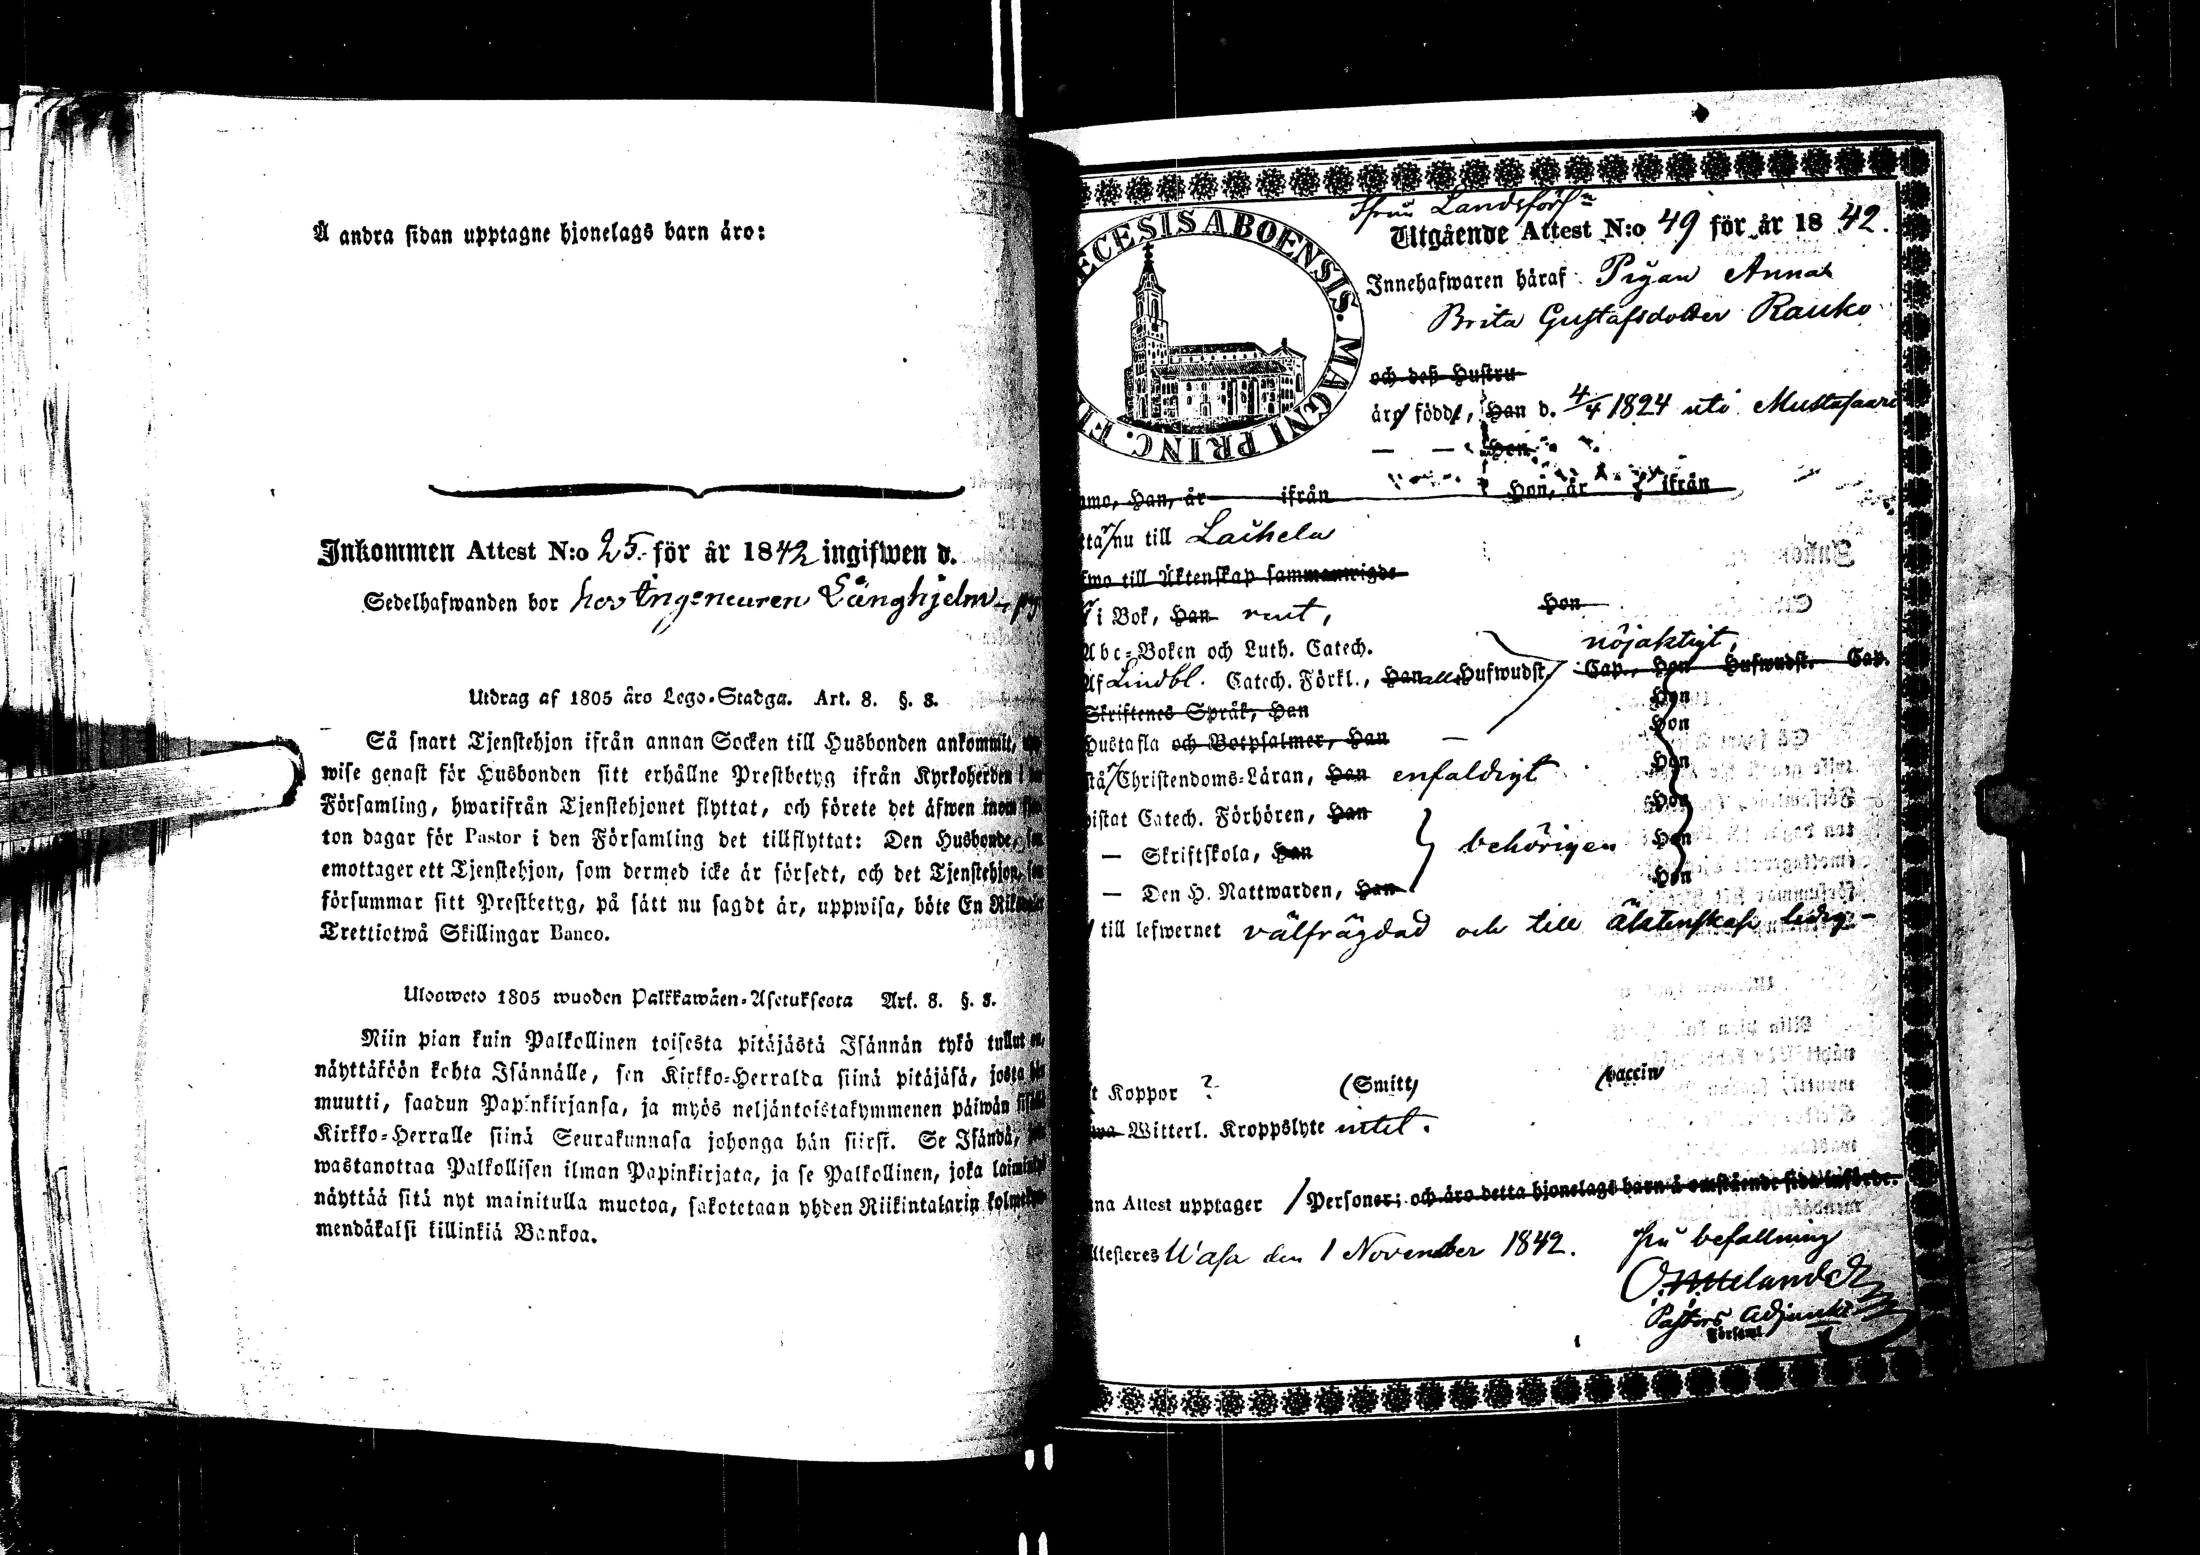 Å andra sidan upptagne hjonelags barn äro:
Inkommen Attest N:o 25. för år 1842 ingifwen d.
Sedelhafwanden bor hos Ingeneuren Långhjelm
Utdrag af 1805 åro Lego-Stadga. Art. 8. §. 8.
Så snart Tjenstehjon ifrån annan Socken till Husbonden ankommit,
wise genast för Husbonden sitt erhållne Prestbetyg ifrån Kyrkoherden i
Församling, hwarifrån Tjenstehjonet flyttat, och förete det äfwen inom
ton dagar för Pastor i den Församling det tillflyttat: Den Husbonde,
emottager ett Tjenstehjon, som dermed icke är försedt, och det Tjenstehjon,
försummar sitt Prestbetyg, på sätt nu sagdt är, uppwisa, böte En
Trettiotwå Skillingar Banco.
Ulosweto 1805 wuoden Palkkawäen-Asetuksesta Art. 8. §. 8.
Niin pian kuin Palkollinen toisesta pitäjästä Isännän tykö tullut on,
näyttäköön kohta Isännälle, sen Kirkko-Herralda siinä pitäjäsä, josta
muutti, saadun Papinkirjansa, ja myös neljäntoistakymmenen päiwän
Kirkko-Herralle siinä Seurakunnasa johonga hän siirst. Se Isändä,
wastanottaa Palkollisen ilman Papinkirjata, ja se Palkollinen, joka
näyttää sitä nyt mainitulla muotoa, sakotetaan yhden Riikintalarin
mendäkalsi killinkiä Bankoa.
ECESIS ABOENSIS. MAGNI PRINC. FI
från Landsförs:n
Utgående Attest N:o 49 för år 1842.
Innehafwaren häraf Pigan Anna
Brita Gustafsdotter Rauko
och deß Hustru
äro födde, Han d. 4/4 1824 uti Mustasaari
— — Hon
Han, år ifrån Hon, år ifrån
nu till Laihela
till Äktenskap sammanwigde
i Bok, Han rent, Hon
Abc-Boken och Luth. Catech. nöjaktigt,
Af Lindbl. Catech. Förkl., Han alla Hufwudst. Cap., Hon Hufwudst. Cap.
Skriftenes Språk, Han Hon
Hustafla och Botpsalmer, Han — Hon
Christendoms-Läran, Han enfaldigt Hon
Catech. Förhören, Han Hon
— Skriftskola, Han behörigen Hon
— Den H. Nattwarden, Han Hon
till lefwernet välfrägdad och till äktenskap ledig —
Koppor ? (Smitt) (vaccin)
Witterl. Kroppslyte intet.
Attest upptager 1 Personer; och äro detta hjonelags barn å omstående sida införde.
Attesteres Wasa den 1 November 1842. På befallning
Pastors Adjunkt
Församl.